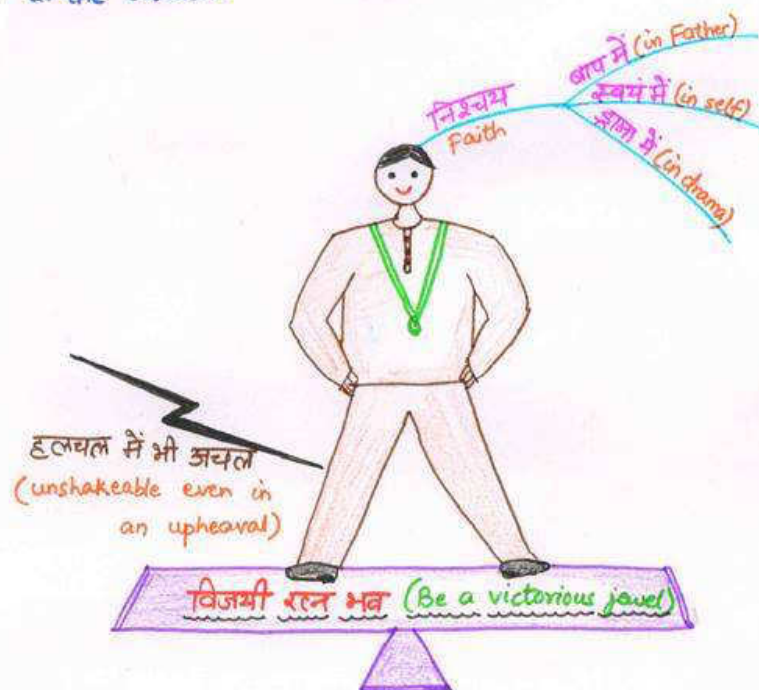 निश्चय
Faith
बाप में (in Father)
स्वयं में (in self)
ड्रामा में (in drama)
हलचल में भी अचल
(unshakeable even in
an upheaval)
विजयी रत्न भव (Be a victorious jewel)